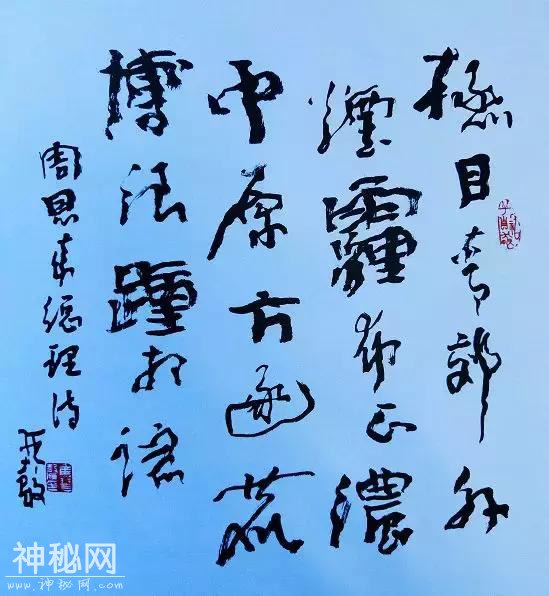 極目青郊外
煙霾布正濃
中原方逐鹿
博浪踵相踪
周恩来總理诗
神秘网
www.神秘网.com